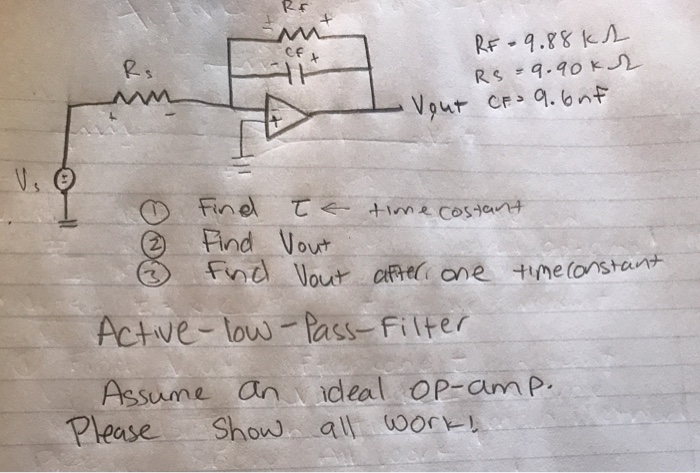 RF
- +
CF
- +
RF = 9.88 kΩ
Rs
RS = 9.90 kΩ
+ -
+
Vout CF = 9.6nF
Vs
① Find τ ← time costant
② Find Vout
③ Find Vout after one timeconstant
Active-low-Pass-Filter
Assume an ideal op-amp.
Please Show all work!